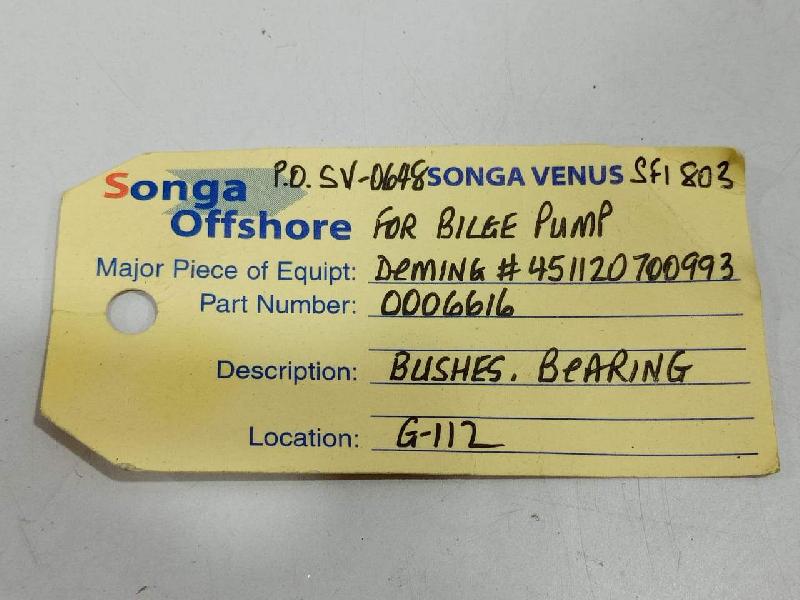 Songa P.O. SV-0648 SONGA VENUS SFI 803
Offshore FOR BILGE PUMP
Major Piece of Equipt: DeMING # 451120700993
Part Number: 0006616
Description: BUSHES. BeARING
Location: G-112